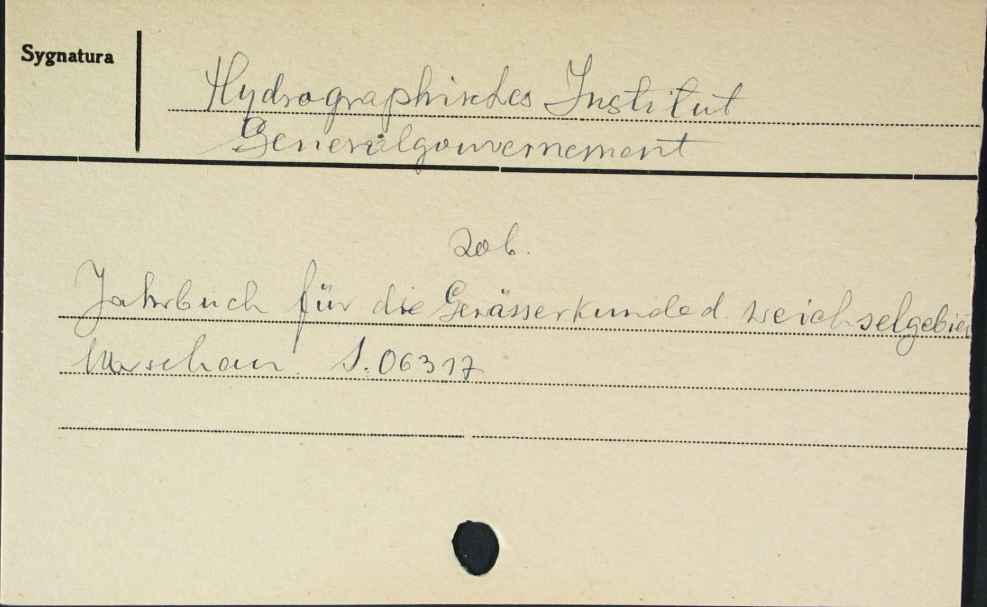 Sygnatura
Hydrographisches Institut
Generalgouvernement
zob.
Jahrbuch für die Gewässerkunde d. Weichselgebie
Warschau. S.06317